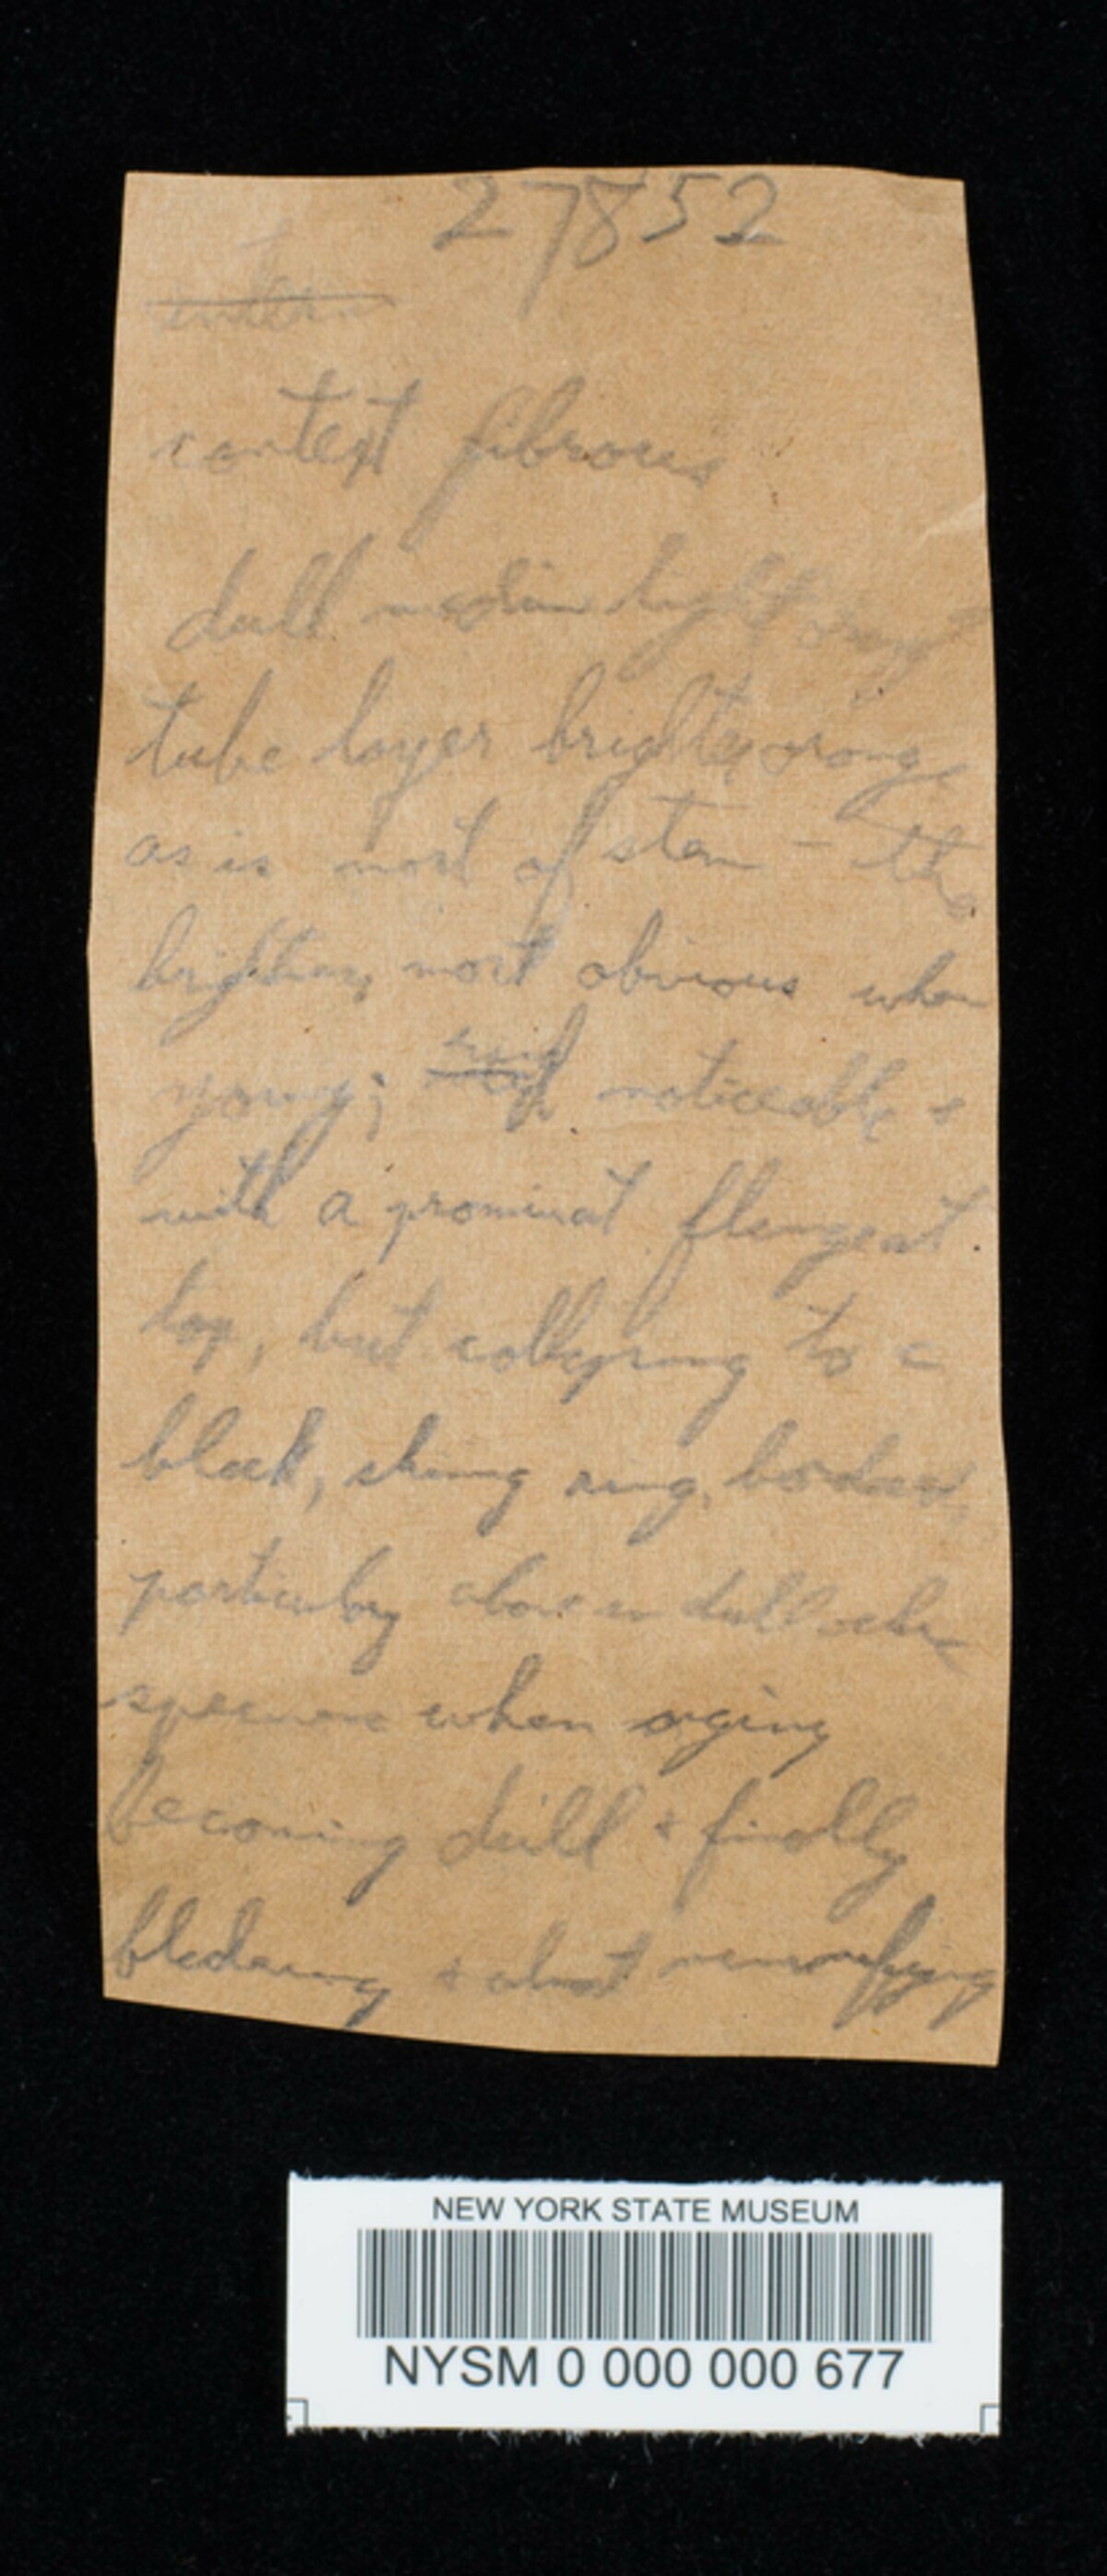 27852
context fibrous
dull medium light orange
tube layer brighter orange
as is most of stem - the
brightness most obvious when
young; noticeable &
with a prominent flange at
top, but collapsing to a
black, shiny ring,
particularly above in dull
specimens when aging
becoming dull & finally
blackening & almost
NEW YORK STATE MUSEUM
NYSM 0 000 000 677